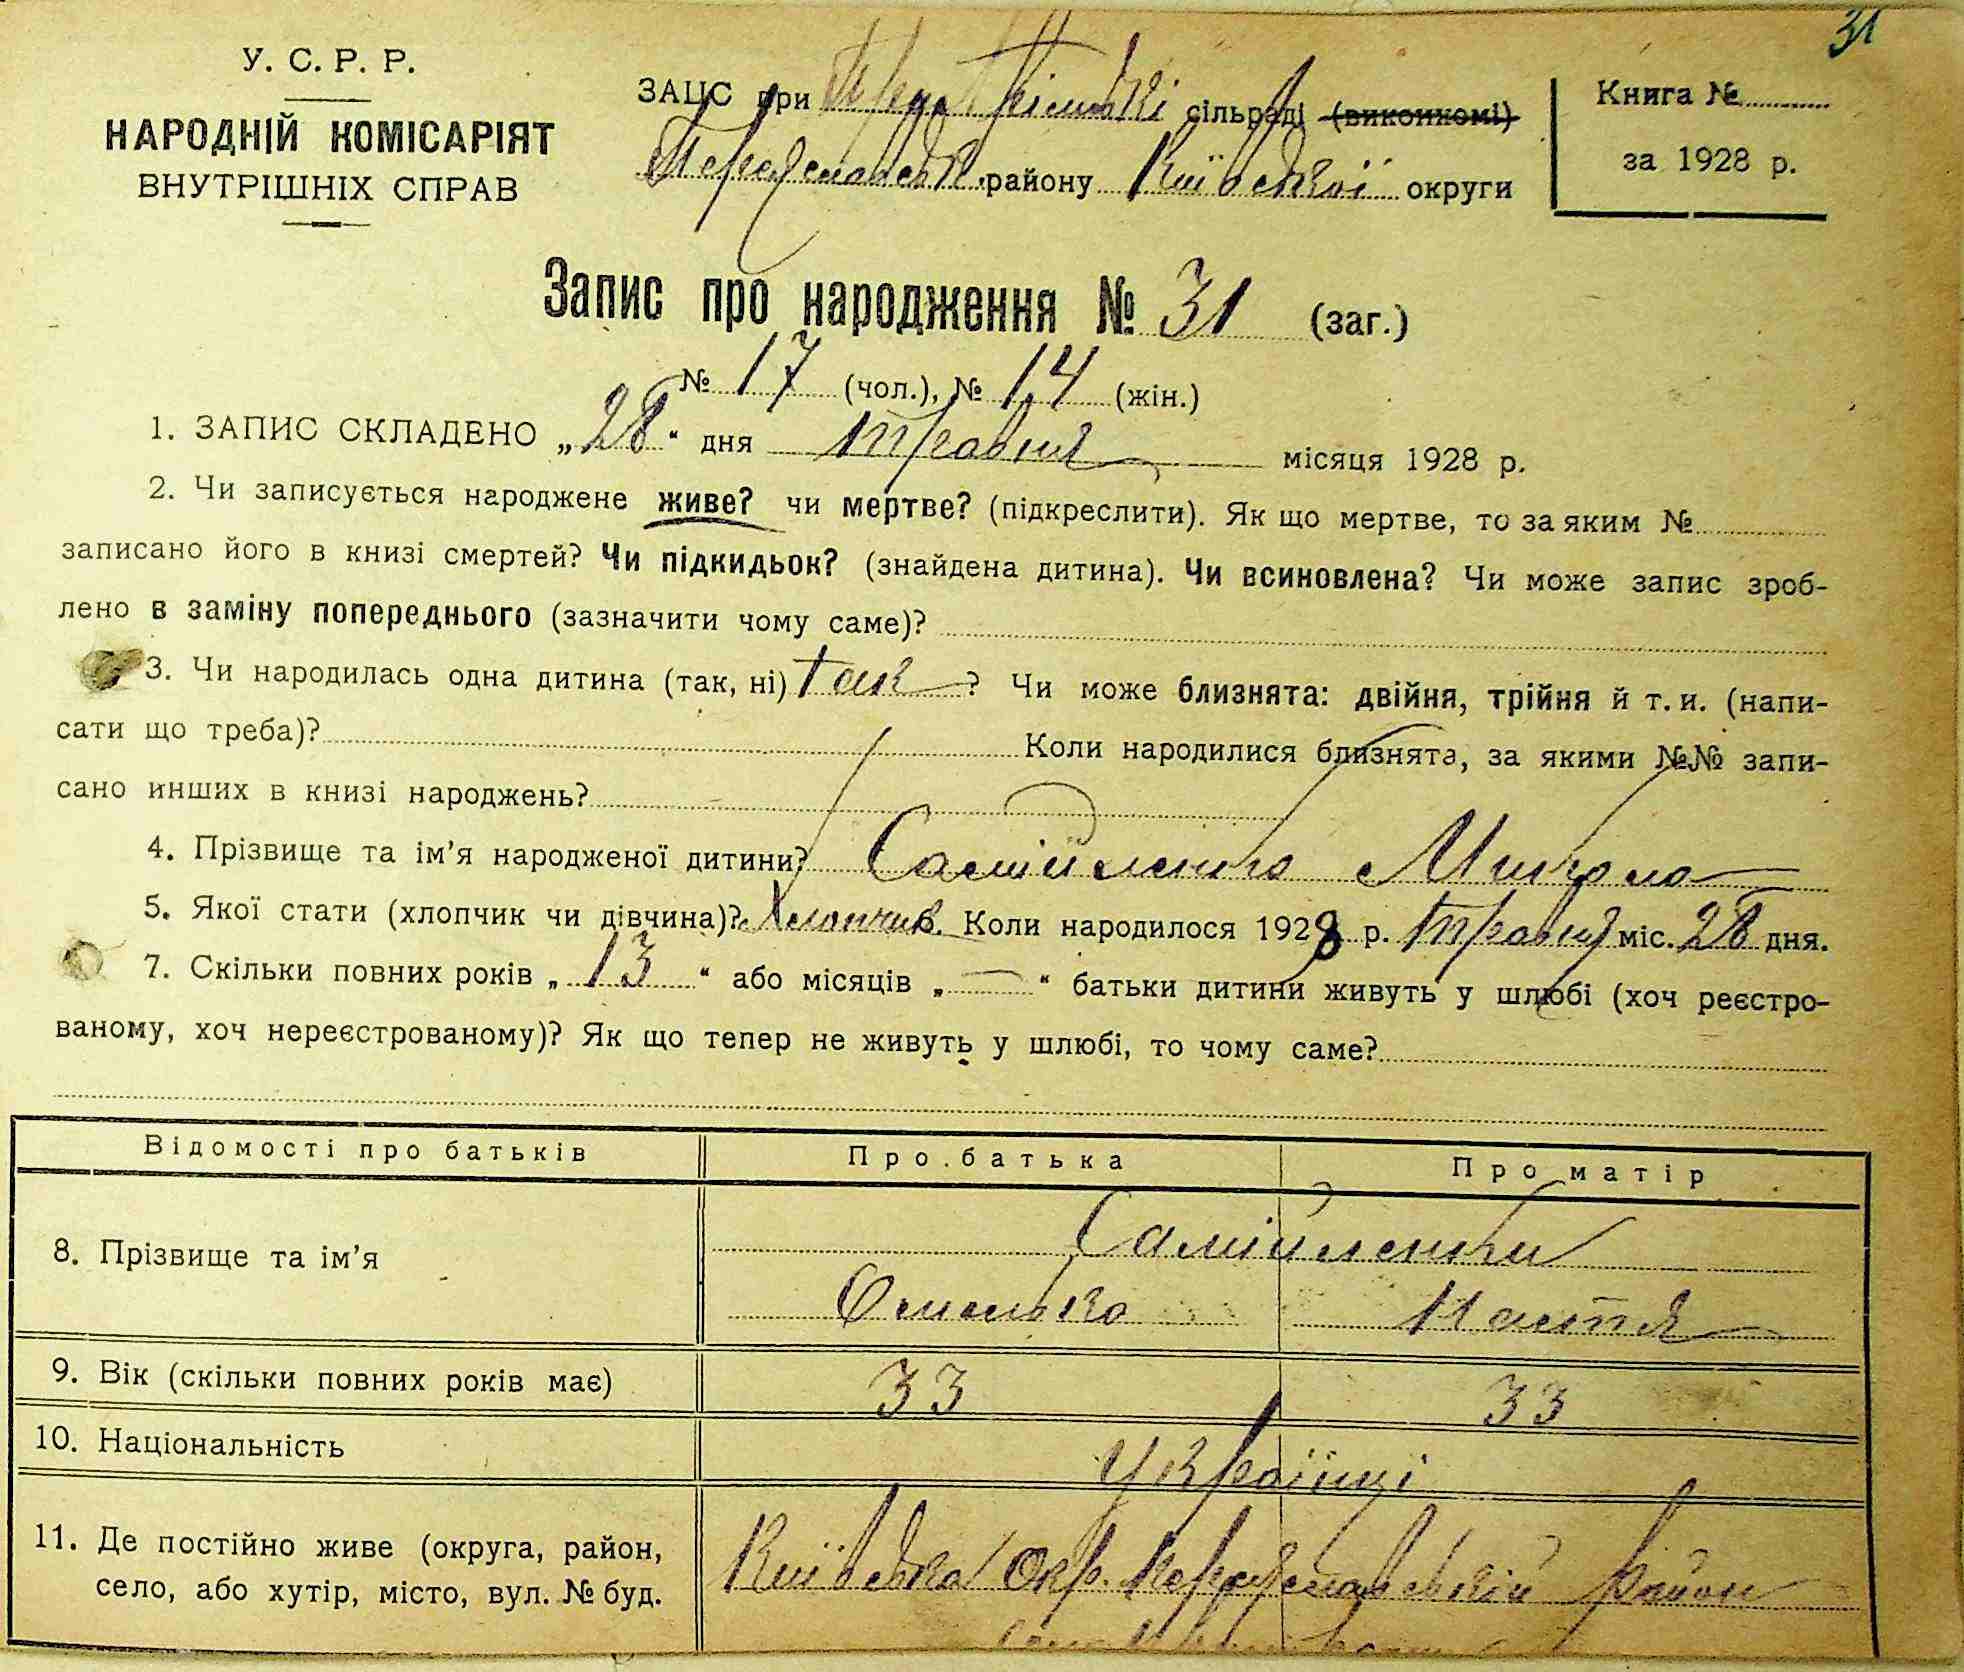 31
У. С. Р. Р.
НАРОДНІЙ КОМІСАРІЯТ
ВНУТРІШНІХ СПРАВ
ЗАЦС при сільраді (виконкомі)
Переяславськ. району Київської округи
Книга №
за 1928 р.
Запис про народження № 31 (заг.)
№ 17 (чол.), № 14 (жін.)
1. ЗАПИС СКЛАДЕНО „28“ дня травня місяця 1928 р.
2. Чи записується народжене живе? чи мертве? (підкреслити). Як що мертве, то за яким №
записано його в книзі смертей? Чи підкидьок? (знайдена дитина). Чи всиновлена? Чи може запис зроб-
лено в заміну попереднього (зазначити чому саме)?
3. Чи народилась одна дитина (так, ні) так ? Чи може близнята: двійня, трійня й т. и. (напи-
сати що треба)? Коли народилися близнята, за якими №№ запи-
сано инших в книзі народжень?
4. Прізвище та ім'я народженої дитини? Самійленко Микола
5. Якої стати (хлопчик чи дівчина)? Хлопчик. Коли народилося 1928 р. травня міс. 28 дня.
7. Скільки повних років „13“ або місяців „—“ батьки дитини живуть у шлюбі (хоч реєстро-
ваному, хоч нереєстрованому)? Як що тепер не живуть у шлюбі, то чому саме?
Відомості про батьків Про батька Про матір
8. Прізвище та ім'я Самійленки
Омелько Настя
9. Вік (скільки повних років має) 33 33
10. Національність Українці
11. Де постійно живе (округа, район, Київська Окр. Переяславський район
село, або хутір, місто, вул. № буд.